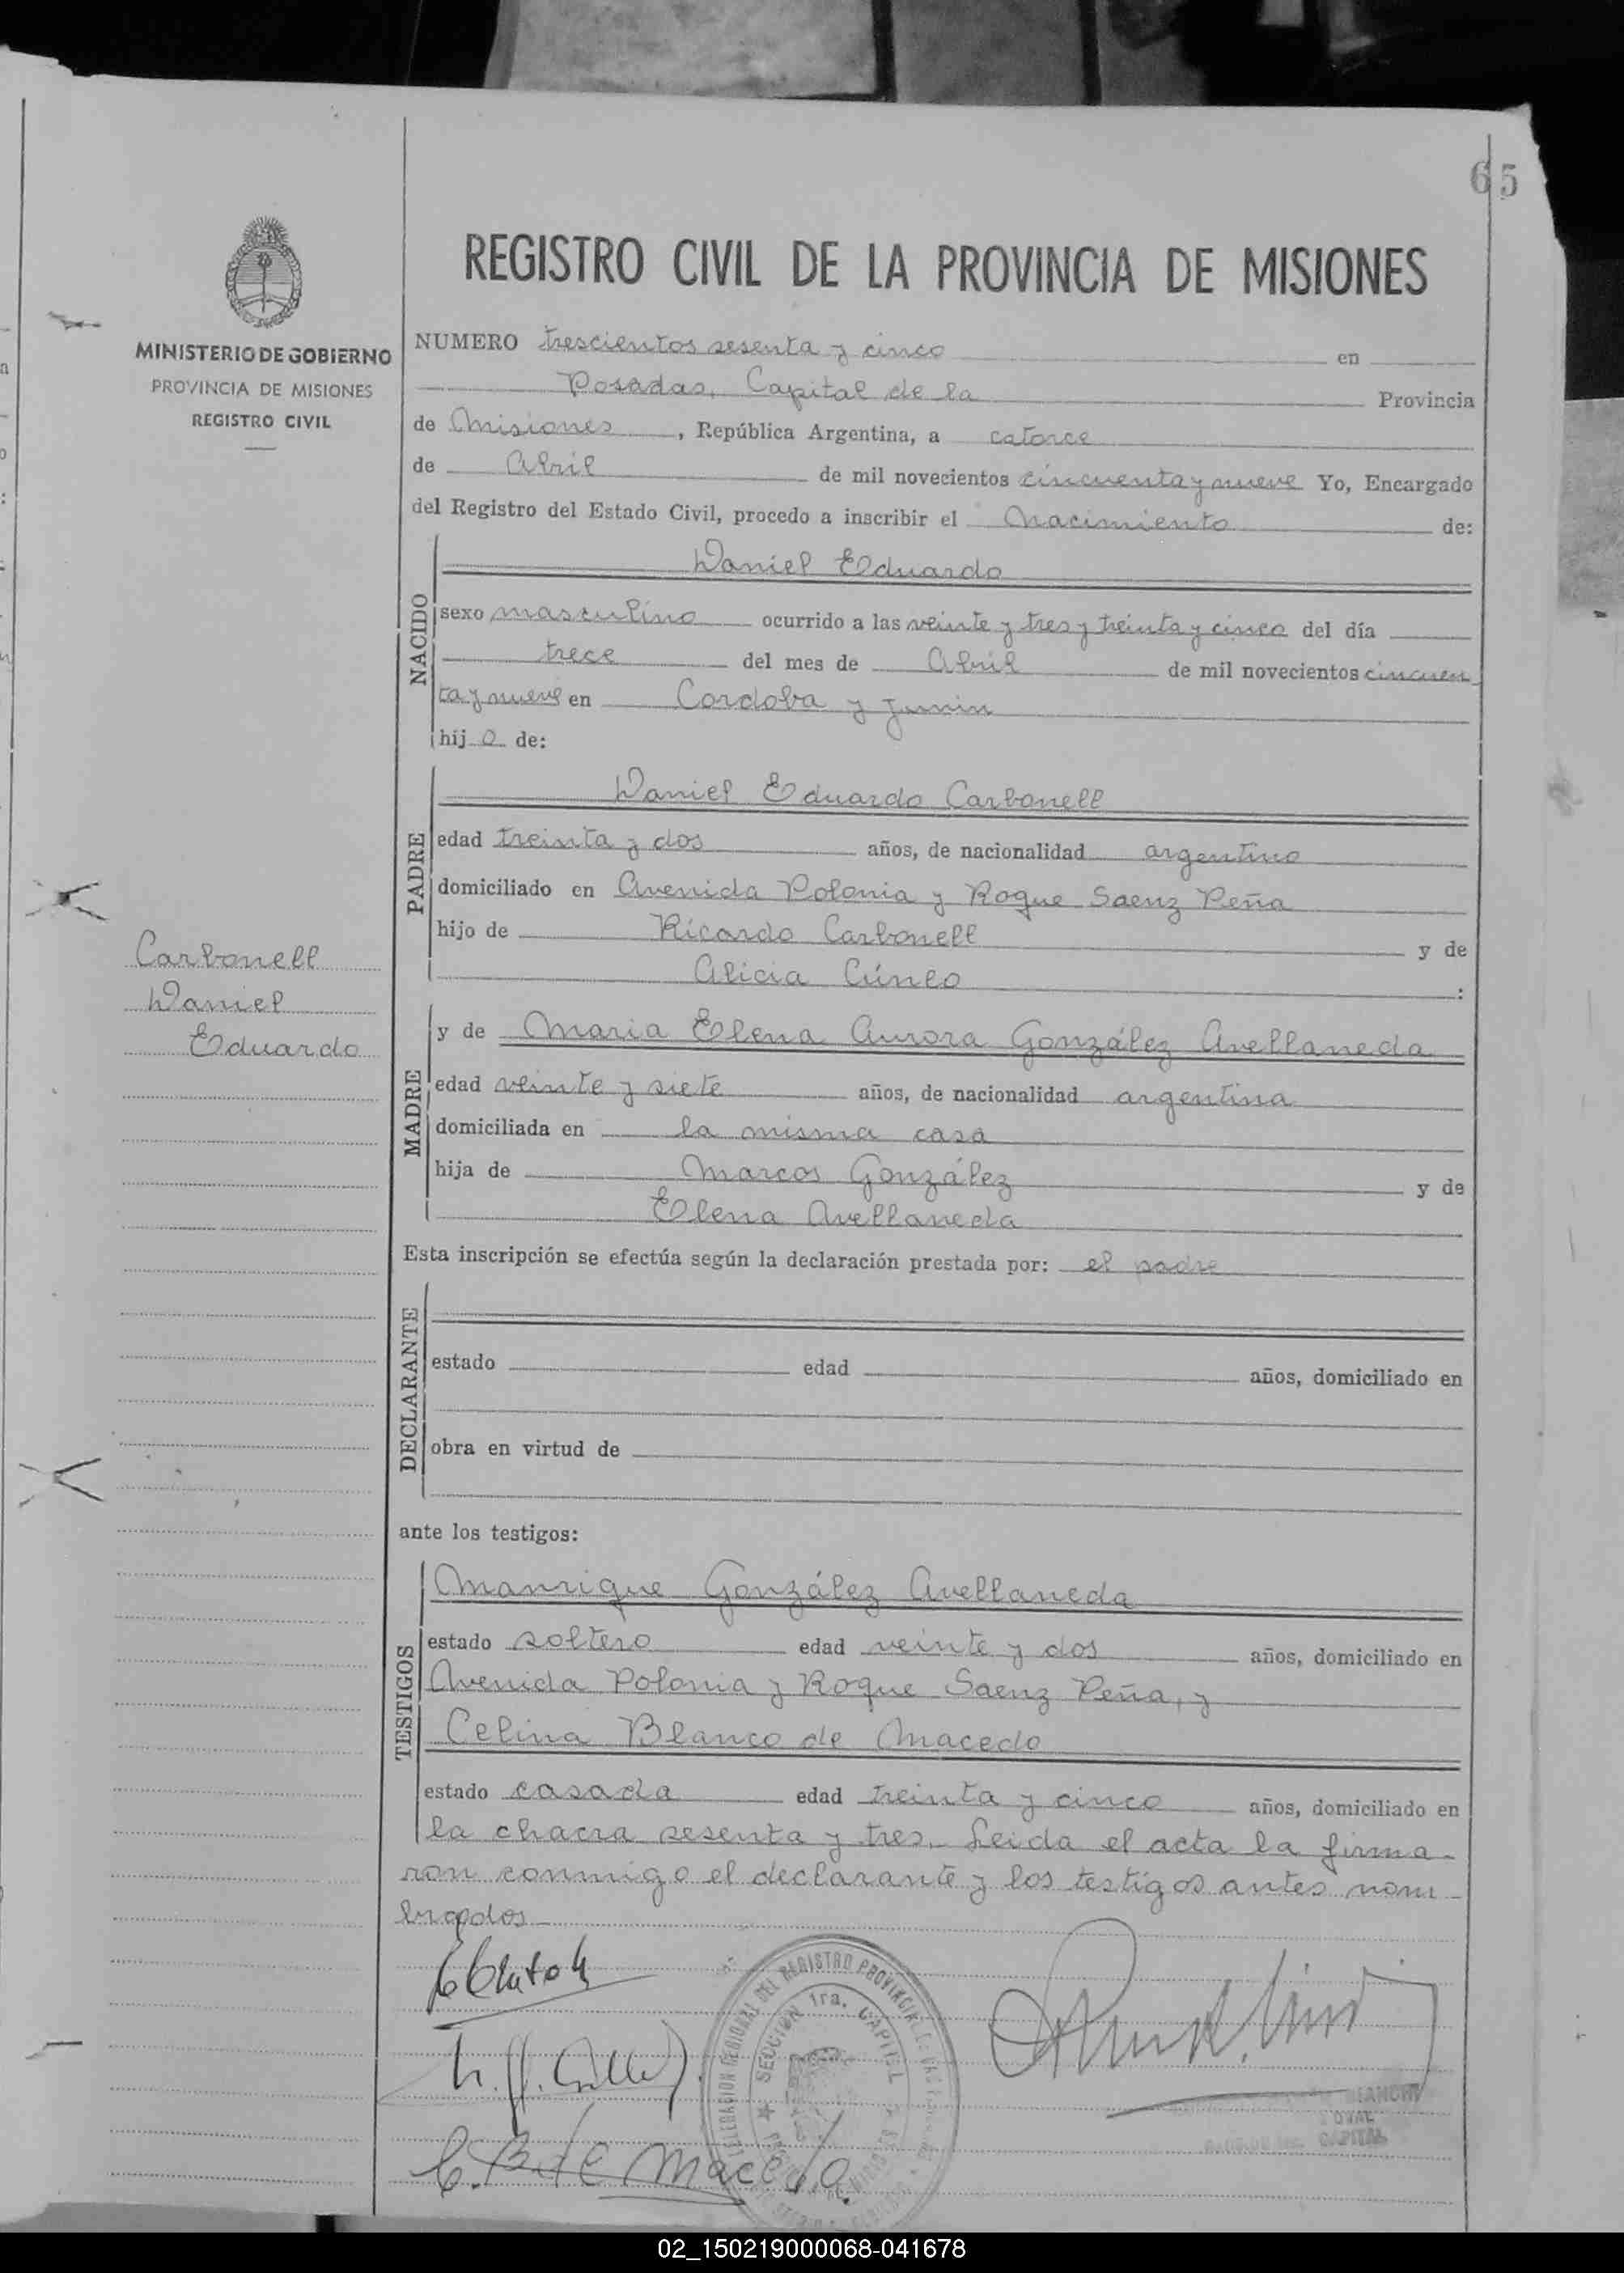 65
REGISTRO CIVIL DE LA PROVINCIA DE MISIONES
MINISTERIO DE GOBIERNO
PROVINCIA DE MISIONES
REGISTRO CIVIL
NUMERO trescientos sesenta y cinco en
Posadas, Capital de la Provincia
de Misiones, República Argentina, a catorce
de Abril de mil novecientos cincuenta y nueve Yo, Encargado
del Registro del Estado Civil, procedo a inscribir el Nacimiento de:
NACIDO
Daniel Eduardo
sexo masculino ocurrido a las veinte y tres y treinta y cinco del día
trece del mes de Abril de mil novecientos cincuen
ta y nueve en Cordoba y Junin
hijo de:
PADRE
Daniel Eduardo Carbonell
edad treinta y dos años, de nacionalidad argentino
domiciliado en Avenida Polonia y Roque Saenz Peña
hijo de Ricardo Carbonell y de
Alicia Cúneo :
Carbonell
Daniel
Eduardo
MADRE
y de Maria Elena Aurora González Avellaneda
edad veinte y siete años, de nacionalidad argentina
domiciliada en la misma casa
hija de Marcos González y de
Elena Avellaneda
Esta inscripción se efectúa según la declaración prestada por: el padre
DECLARANTE
estado edad años, domiciliado en
obra en virtud de
ante los testigos:
TESTIGOS
Manrique González Avellaneda
estado soltero edad veinte y dos años, domiciliado en
Avenida Polonia y Roque Saenz Peña, y
Celina Blanco de Macedo
estado casada edad treinta y cinco años, domiciliado en
la chacra sesenta y tres. Leida el acta la firma-
ron conmigo el declarante y los testigos antes nom-
brados
DELEGACION REGIONAL DEL REGISTRO PROVINCIAL DE LAS
SECCION 1ra. CAPITAL
C. B. de Macedo.
BIANCHI
CAPITAL
02_150219000068-041678